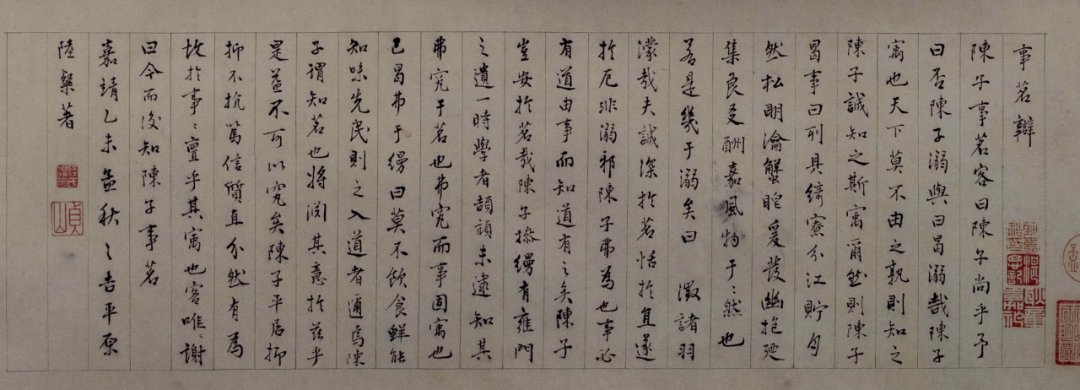 事茗辯
陳子事茗客曰陳子尚乎予
曰否陳子溺與曰曷溺哉陳子
寓也天下莫不由之孰則知之
陳子誠知之斯寓爾然則陳子
曷事曰列具綺寮分江貯月
然松明瀹蟹眼爰發幽抱延
集良友酬嘉風物于〻然也
若是幾于溺矣曰 澂諸羽
濛哉夫誠深於茗恬於宜遂
於厄非溺邪陳子弗為也事必
有道由事而知道有之矣陳子
豈安於茗哉陳子摻縵有雍門
之遺一時學者頡頏未逮知其
弗究于茗也弗究而事固寓也
已曷弗于縵曰莫不飲食鮮能
知味先民則之入道者邇焉陳
子謂知茗也將淵其意於茲乎
是蓋不可以究矣陳子平居抑
抑不抗篤信質直介然有為
故於事〻亶乎其寓也客唯〻謝
曰今而後知陳子事茗
嘉靖乙未孟秋之吉平原
陸粲著
貞山